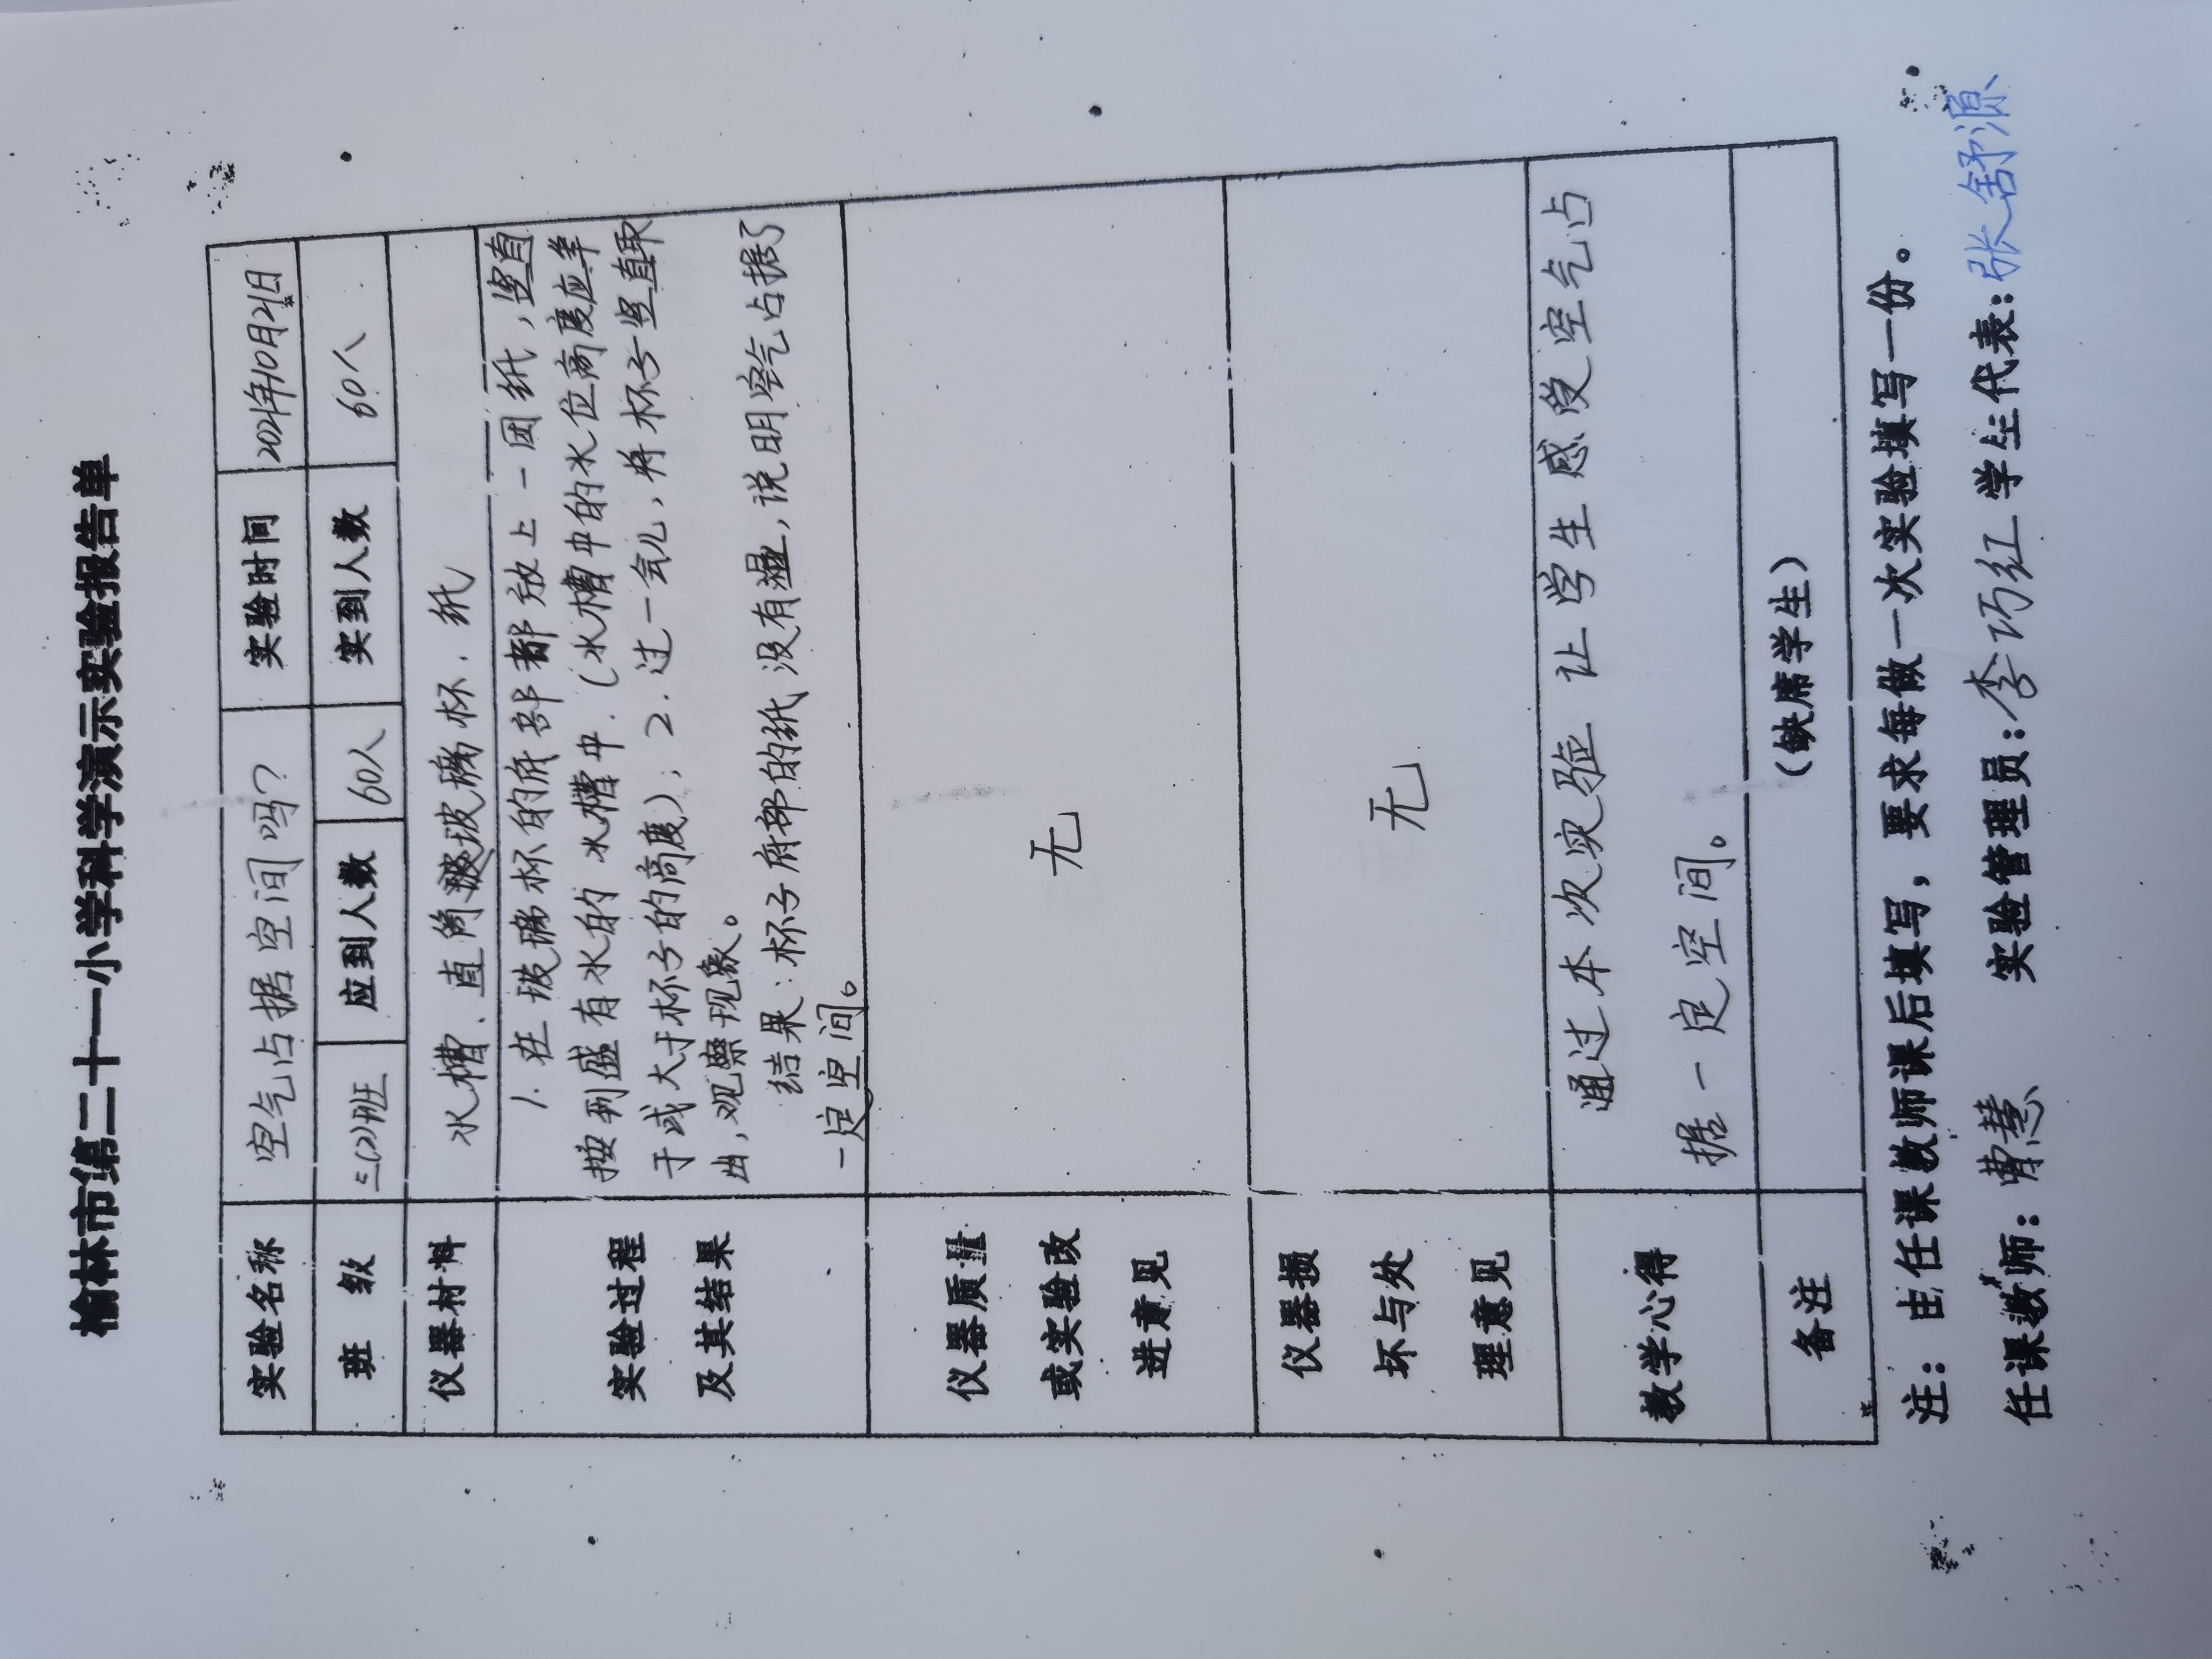 榆林市第二十一小学科学演示实验报告单
实验名称 空气占据空间吗? 实验时间 2021年10月21日
班 级 三(2)班 应到人数 60人 实到人数 60人
仪器材料 水槽、直筒玻璃杯、纸
实验过程
及其结果
1.在玻璃杯的底部都放上一团纸,竖直
按到盛有水的水槽中.(水槽中的水位高度应等
于或大于杯子的高度);2.过一会儿,将杯子竖直取
出,观察现象。
结果:杯子府部的纸没有湿,说明空气占据了
一定空间。
仪器质量
或实验改
进意见
无
仪器损
坏与处
理意见
无
教学心得
通过本次实验 让学生感受空气占
据一定空间。
备注 (缺席学生)
注:由任课教师课后填写,要求每做一次实验填写一份。
任课教师:曹慧 实验管理员:李巧红 学生代表:张舒源